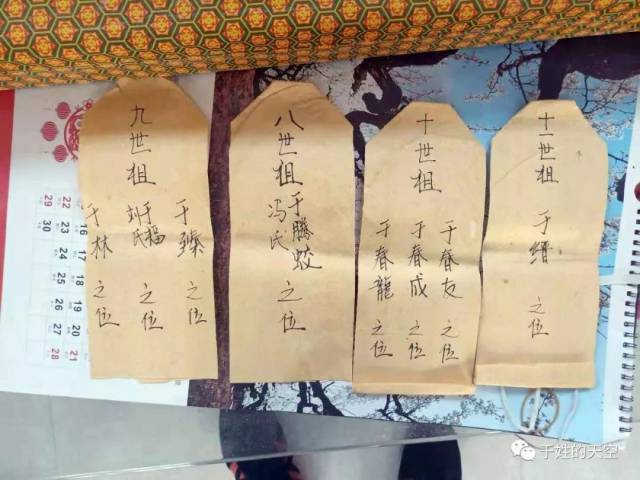 九世祖
于臻之位
于福
刘氏
之位
于林之位
八世祖
于腾蛟
冯氏
之位
十世祖
于春友之位
于春成之位
于春龍之位
十一世祖
于缙之位
29 22
30
21
28
于姓的天空